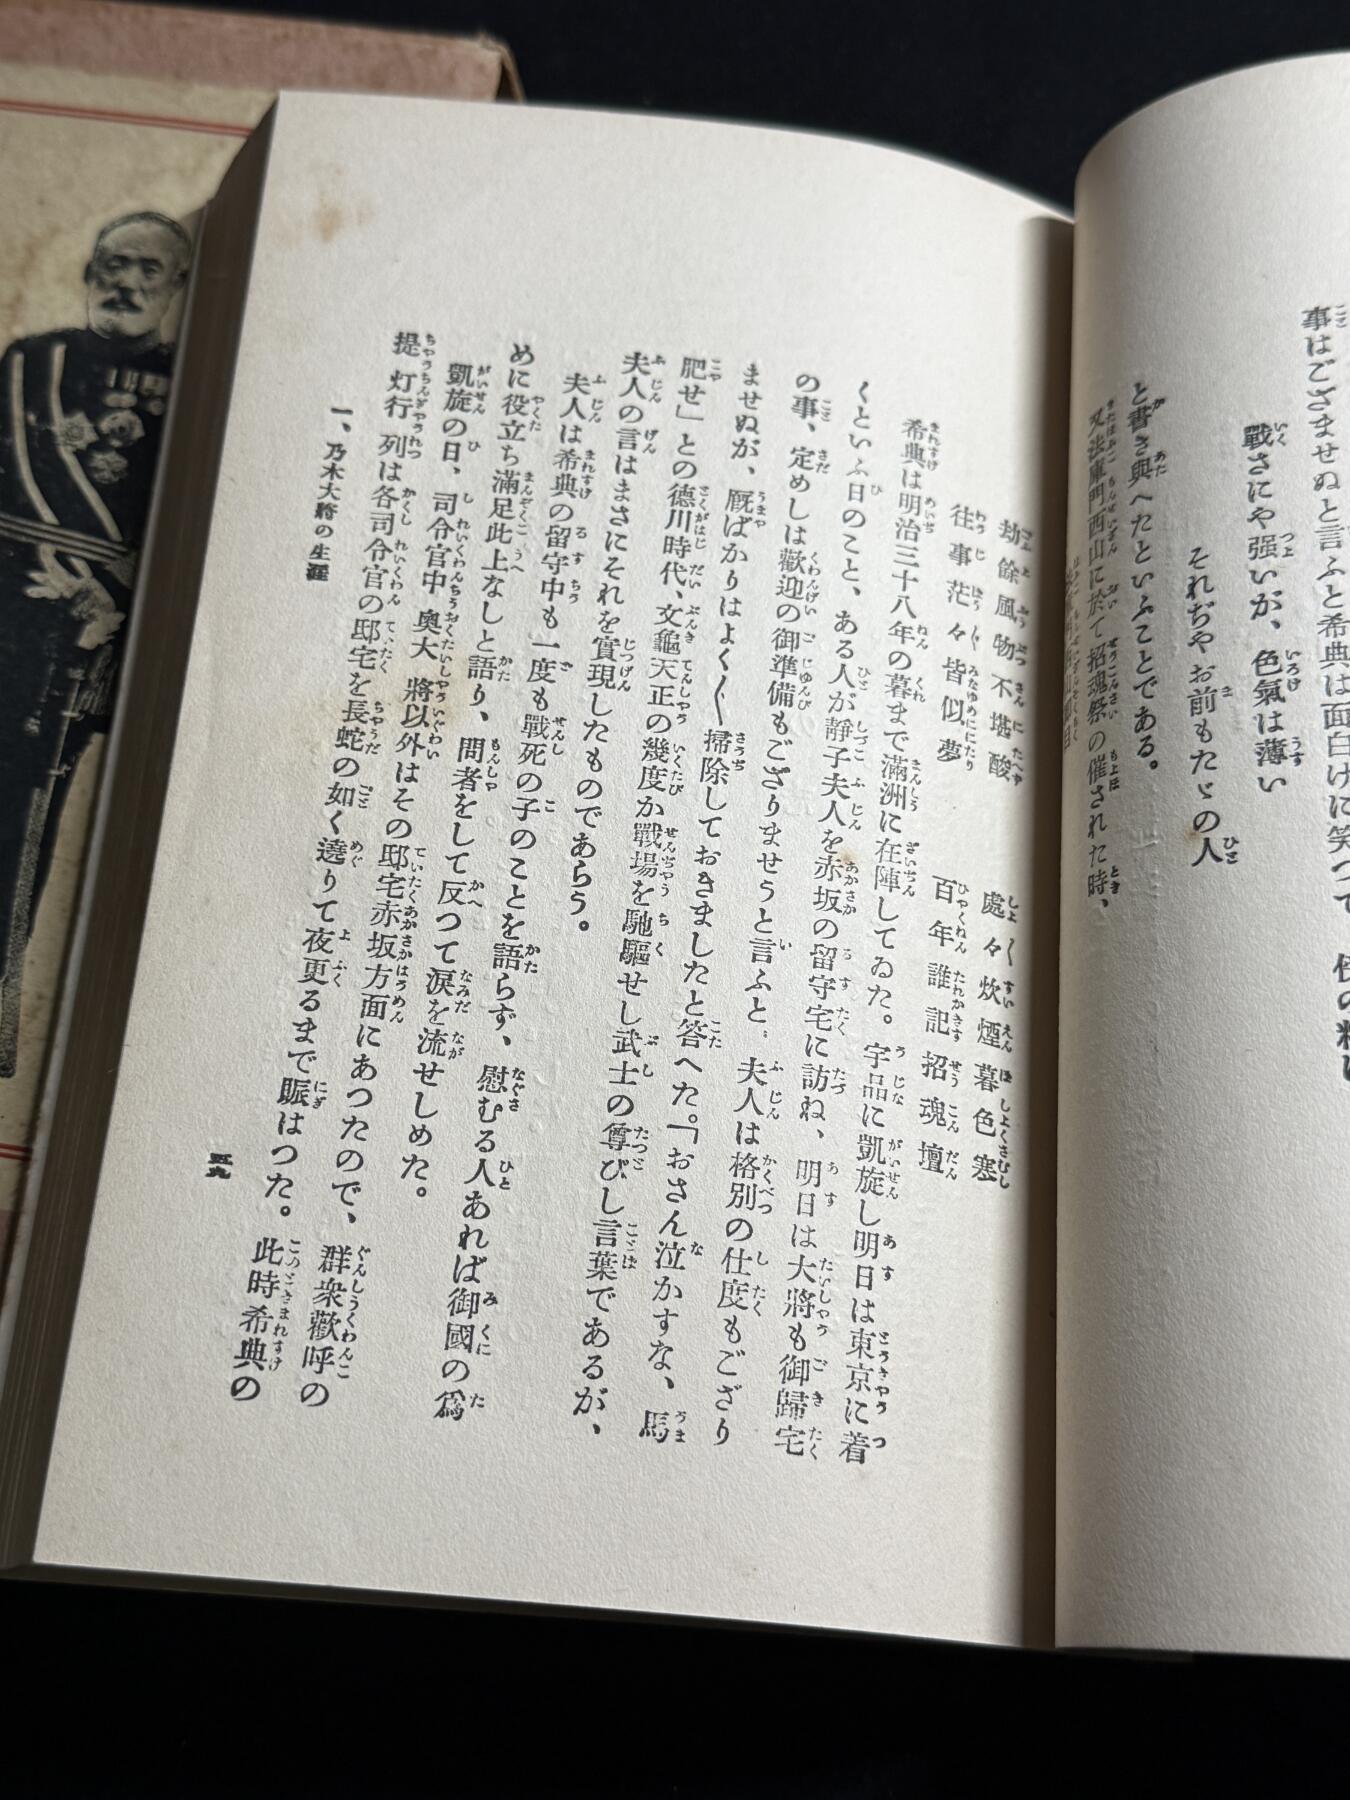 事はござませぬと言ふと希典は面白げに笑つて
戰さにや强いが、色氣は薄い
それぢやお前もたゞの人
と書き與へたといふことである。
又法庫門西山に於て招魂祭の催された時、
劫餘風物不堪酸　處々炊煙暮色塞
往事茫々皆似夢　百年誰記招魂壇
希典は明治三十八年の暮まで滿洲に在陣してゐた。宇品に凱旋し明日は東京に着
くといふ日のこと、ある人が靜子夫人を赤坂の留守宅に訪ね、明日は大將も御歸宅
の事、定めしは歡迎の御準備もござりませうと言ふと、夫人は格別の仕度もござり
ませぬが、厩ばかりはよく〱掃除しておきましたと答へた。「おさん泣かすな、馬
肥せ」との德川時代、文龜天正の幾度か戰場を馳驅せし武士の尊びし言葉であるが、
夫人の言はまさにそれを實現したものであらう。
夫人は希典の留守中も一度も戰死の子のことを語らず、慰むる人あれば御國の爲
めに役立ち滿足此上なしと語り、問者をして反つて淚を流せしめた。
凱旋の日、司令官中奧大將以外はその邸宅赤坂方面にあつたので、群衆歡呼の
提灯行列は各司令官の邸宅を長蛇の如く遶りて夜更るまで賑はつた。此時希典の
一、乃木大將の生涯
五九